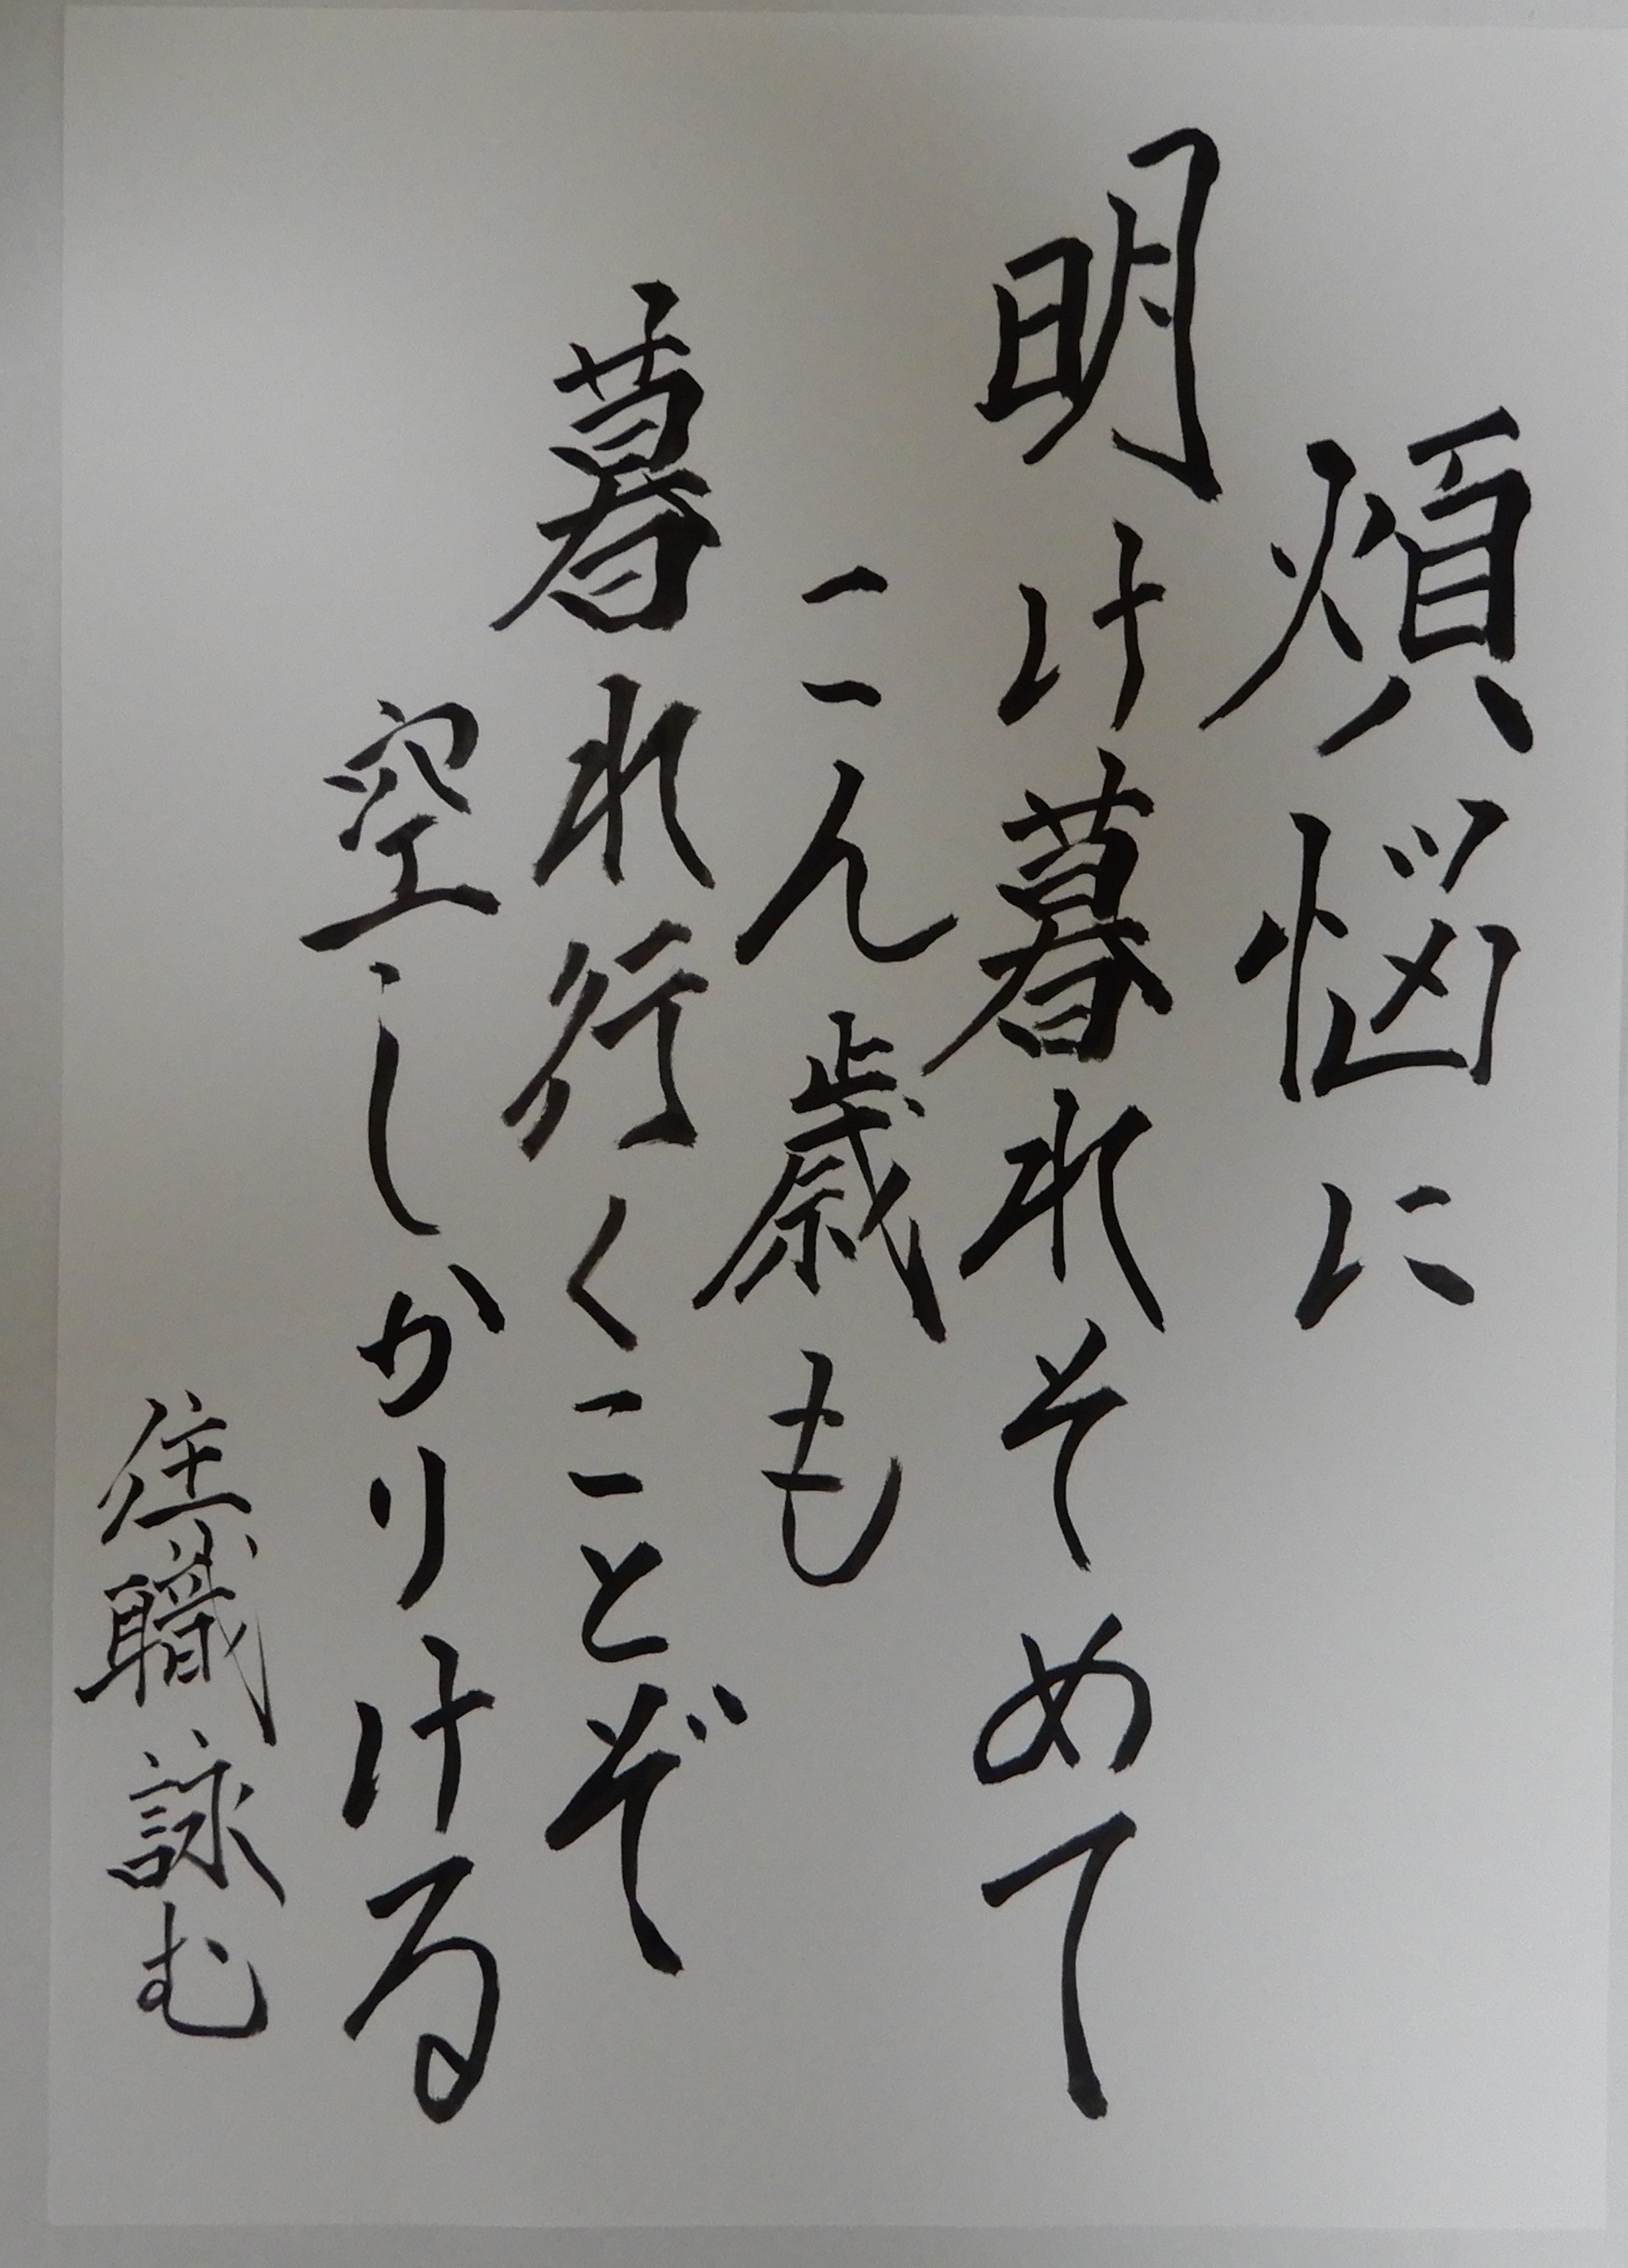 煩悩に
明け暮れそめて
こん歳も
暮れ行くことぞ
空しかりける
住職詠む